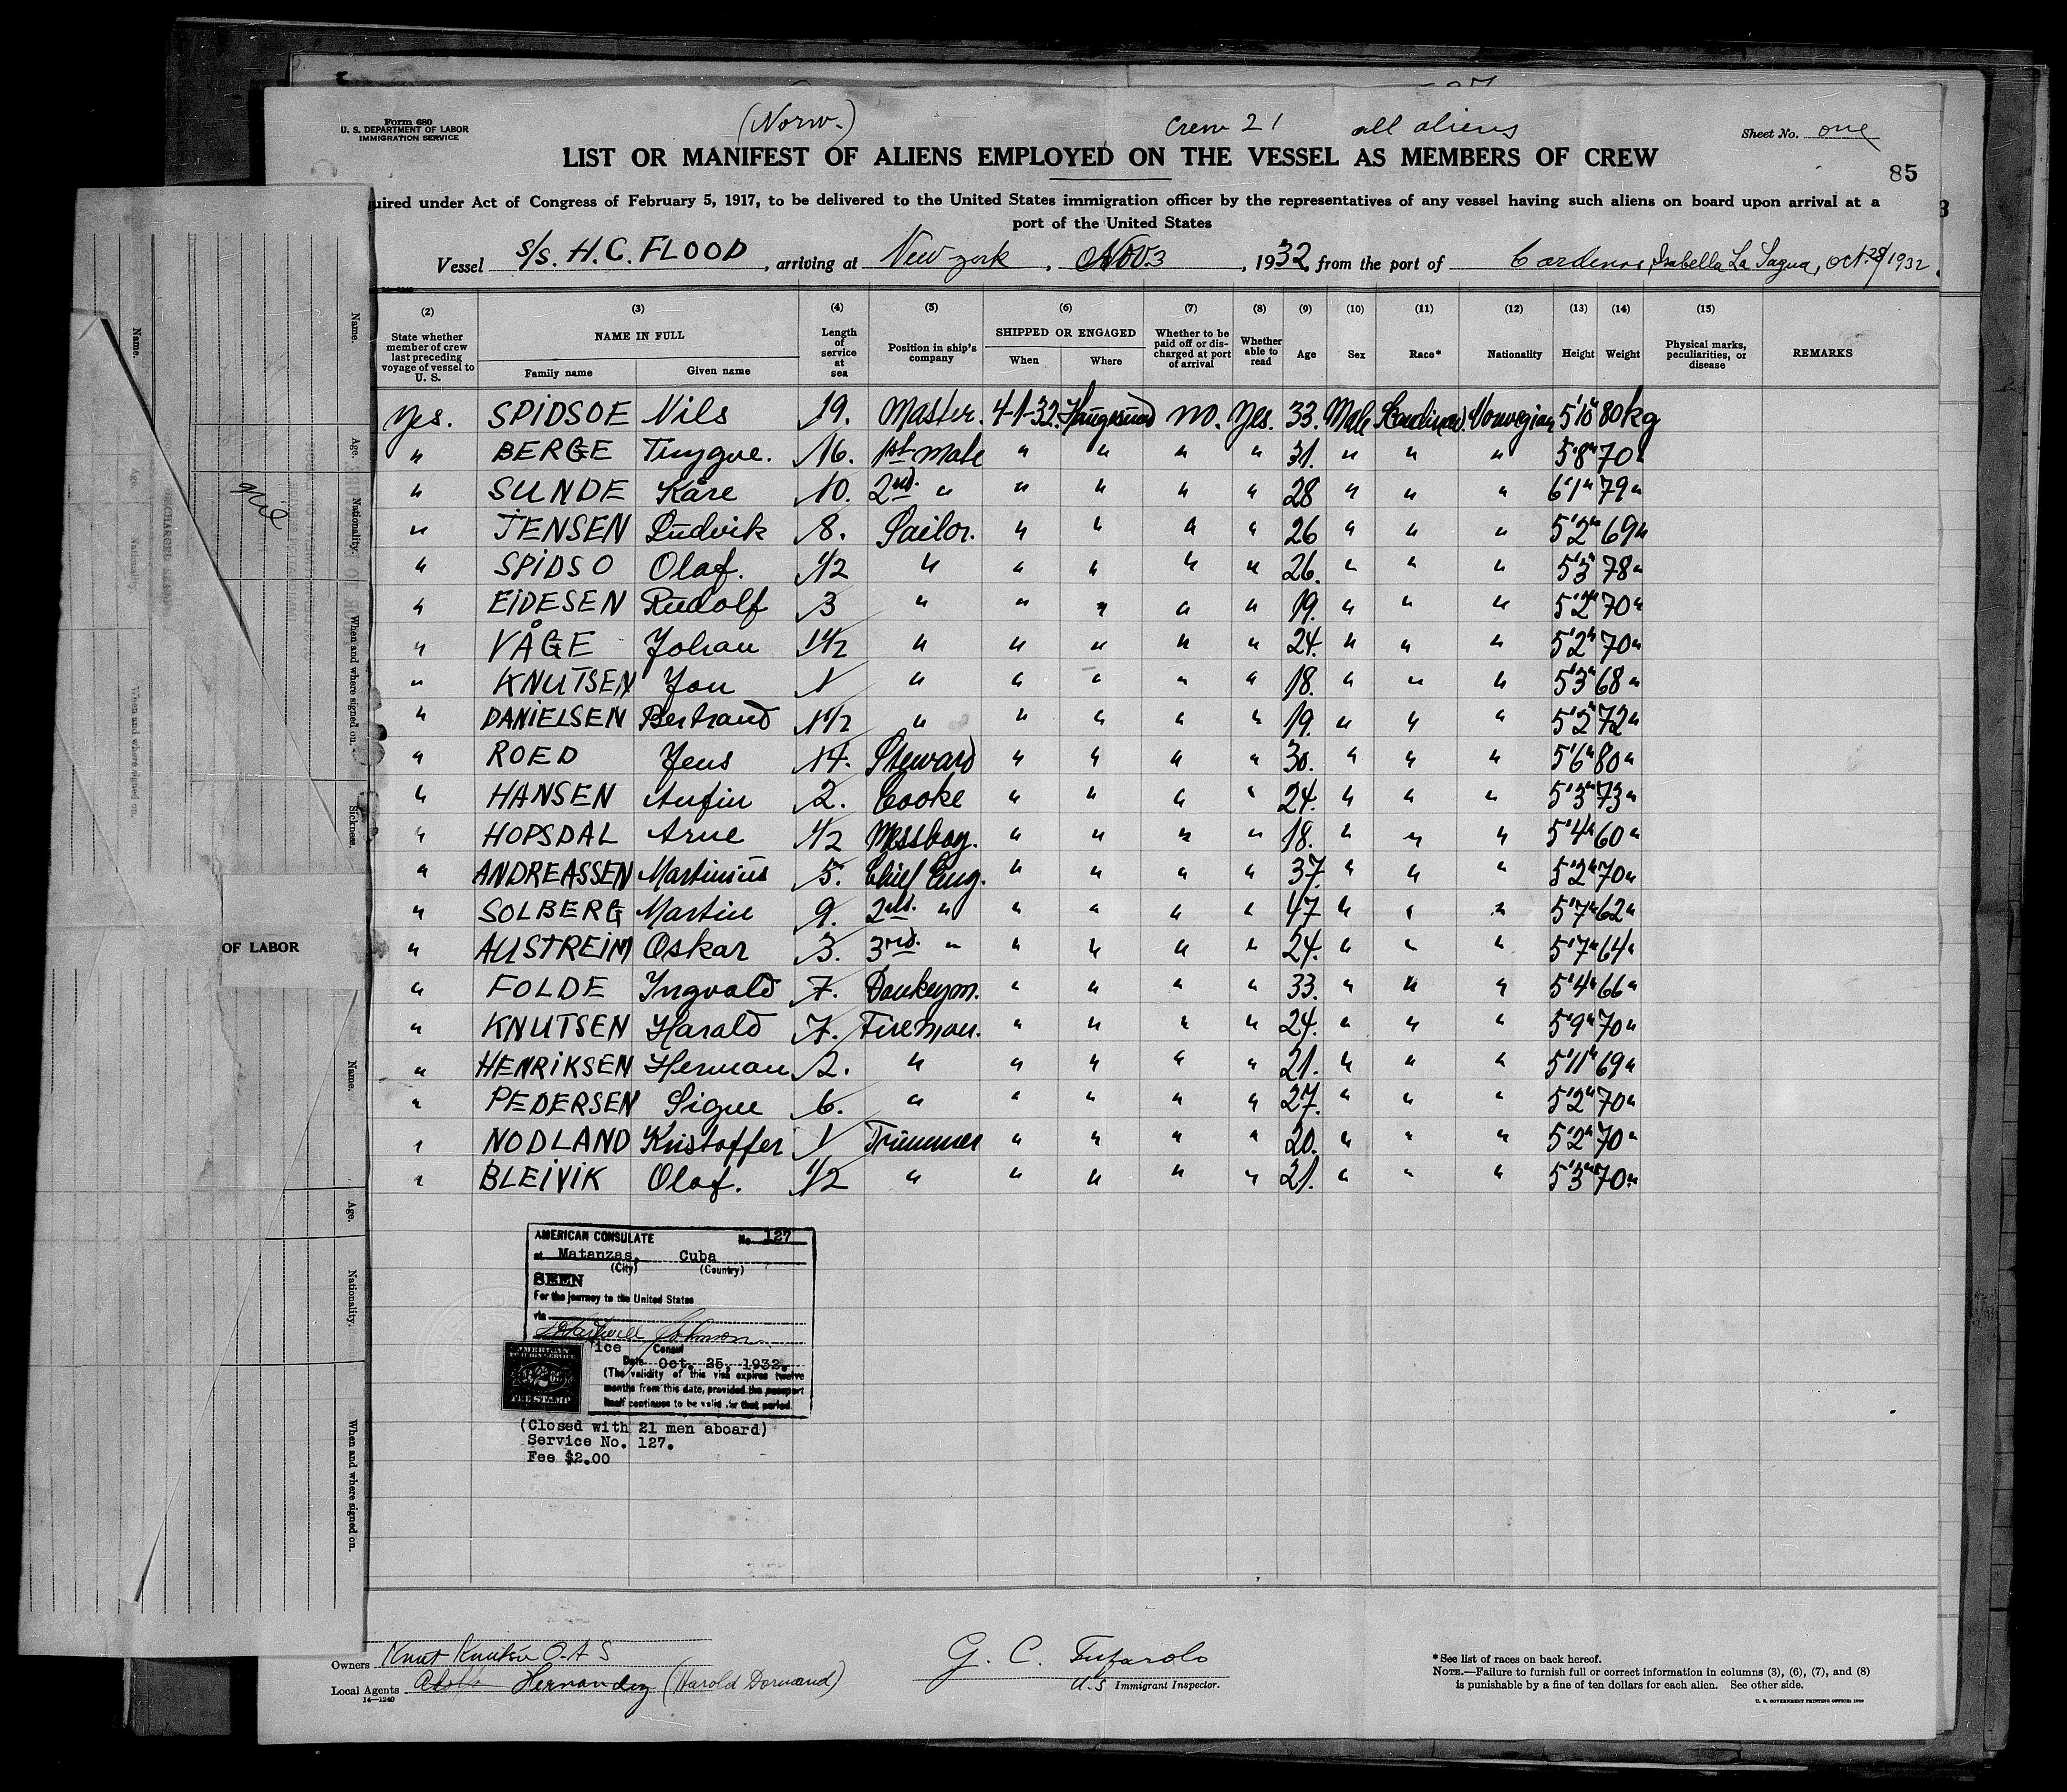 Form 680
U. S. DEPARTMENT OF LABOR
IMMIGRATION SERVICE
(Norw.)
Crew 21 all aliens
Sheet No. one
LIST OR MANIFEST OF ALIENS EMPLOYED ON THE VESSEL AS MEMBERS OF CREW
85
uired under Act of Congress of February 5, 1917, to be delivered to the United States immigration officer by the representatives of any vessel having such aliens on board upon arrival at a
port of the United States
Vessel S/S. H.C. FLOOD, arriving at New york, Nov. 3, 1932, from the port of Cardenas, Isabella La Sagua, Oct. 28/1932.
(2) (3) (4) (5) (6) (7) (8) (9) (10) (11) (12) (13) (14) (15)
State whether member of crew last preceding voyage of vessel to U. S. NAME IN FULL Family name Given name Length of service at sea Position in ship's company SHIPPED OR ENGAGED When Where Whether to be paid off or discharged at port of arrival Whether able to read Age Sex Race* Nationality Height Weight Physical marks, peculiarities, or disease REMARKS
Yes. SPIDSOE Nils 19. Master. 4-1-32. Haugesund No. Yes. 33. Male Scandinav. Norwegian 5'10" 80kg
" BERGE Trygve. 16. 1st mate " " " " 31. " " " 5'8" 70"
" SUNDE Kåre 10. 2nd. " " " " " 28 " " " 6'1" 79"
" JENSEN Ludvik 8. Sailor. " " " " 26 " " " 5'2" 69"
" SPIDSO Olaf. 1/2 " " " " " 26. " " " 5'3" 78"
" EIDESEN Rudolf 3 " " " " " 19. " " " 5'2" 70"
" VÅGE Johan 1 1/2 " " " " " 24. " " " 5'2" 70"
" KNUTSEN Jon 1 " " " " " 18. " " " 5'3" 68"
" DANIELSEN Bertrand 1 1/2 " " " " " 19. " " " 5'2" 72"
" ROED Jens 14. Steward " " " " 30. " " " 5'6" 80"
" HANSEN Anfin 2. Cooke " " " " 24. " " " 5'3" 73"
" HOPSDAL Arne 1/2 Messboy. " " " " 18. " " " 5'4" 60"
" ANDREASSEN Martinius 5. Chief Eng. " " " " 37. " " " 5'2" 70"
" SOLBERG Martin 9. 2nd. " " " " " 47 " " " 5'7" 62"
" AUSTREIM Oskar 3. 3rd. " " " " " 24. " " " 5'7" 64"
" FOLDE Ingvald 7. Donkeym. " " " " 33. " " " 5'4" 66"
" KNUTSEN Harald 7. Fireman. " " " " 24. " " " 5'9" 70"
" HENRIKSEN Herman 2. " " " " " 21. " " " 5'11" 69"
" PEDERSEN Signe 6. " " " " " 27. " " " 5'2" 70"
" NODLAND Kristoffer 1 Trimmer " " " " 20. " " " 5'2" 70"
" BLEIVIK Olaf. 1/2 " " " " " 21. " " " 5'3" 70"
AMERICAN CONSULATE No. 127
at Matanzas, Cuba
(City) (Country)
SEEN
For the journey to the United States
via
Johnson
ice Consul
Date Oct. 25, 1932.
(The validity of this visa expires twelve
months from this date, provided the passport
itself continues to be valid for that period.
(Closed with 21 men aboard)
Service No. 127.
Fee $2.00
Owners Knut Knutsen O.A.S
Local Agents Hernandez (Harold Dormand)
14—1240
G. C. Tufarolo
U.S Immigrant Inspector.
* See list of races on back hereof.
NOTE.—Failure to furnish full or correct information in columns (3), (6), (7), and (8)
is punishable by a fine of ten dollars for each alien. See other side.
U. S. GOVERNMENT PRINTING OFFICE: 1929
Name.
Age.
Nationality.
When and where signed on.
Sickness.
OF LABOR
Name.
Age.
Nationality.
When and where signed on.